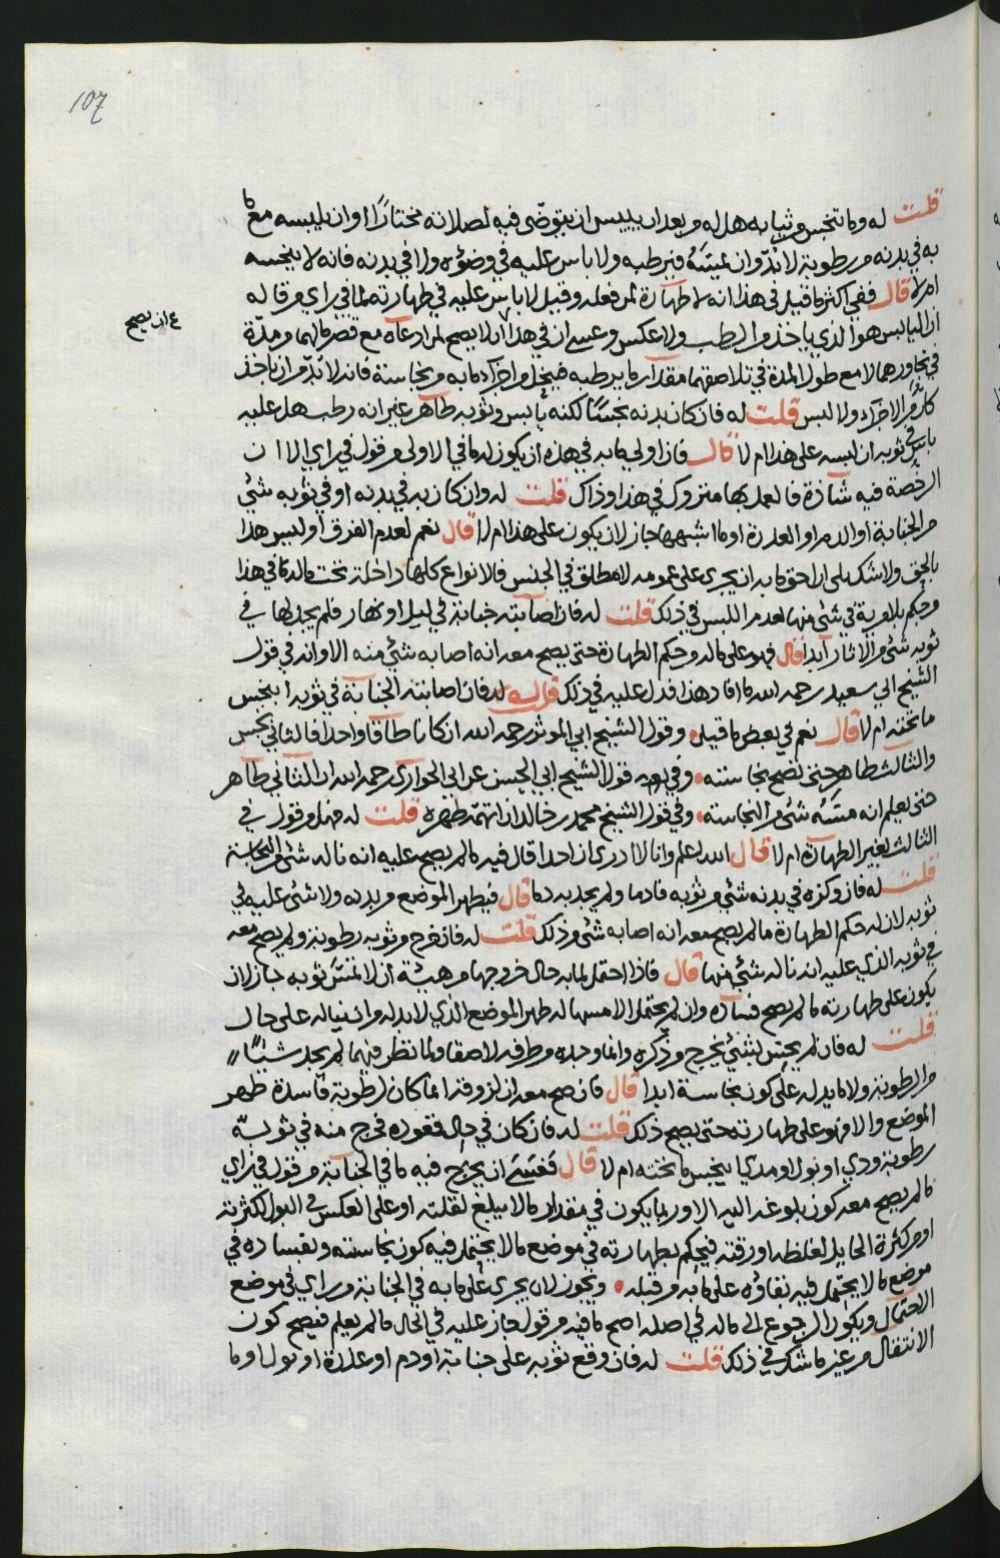 107
قلت له وما تنجس من ثيابه هل له من بعد ان ييبس ان يتوضى فيه لصلاته مختارًا او ان يلبسه مع ما
به في بدنه من رطوبة لا بدّ وان تمسّه فيرطبه ولا باس عليه في وضوئه ولا في بدنه فانه لا ينجسه
ام لا قال ففي اكثر ما قيل في هذا انه لا طهارة لمن فعله وقيل لا باس عليه في طهارته لما في راي من قاله
ان اليابس هو الذي ياخذ من الرطب ولا عكس وعسى ان في هذا ان لا يصح لمن ادعاه مع قصر ما لهما من مدّة
ع ان يصح
في تجاورهما لا مع طول المدة في تلاصقهما مقدار ما يرطبه فيتحلل من اجزآء ما به من نجاسة فانه لا بدّ من ان ياخذ
كل من الاخر ولا لبس قلت له فان كان بدنه نجسًا لكنه يابس وثوبه طاهر غير انه رطب هل عليه
باس في ثوبه ان لبسه على هذا ام لا قال فان اولى ما به في هذه ان يكون له ما في الاولى من قول في راي الا ان
الرخصة فيه شاذة فالعمل بها متروك في هذا وذاك قلت له وان كان به في بدنه او في ثوبه شئ
من الجنابة او الدم او العذرة او ما اشبهها جاز لان يكون على هذا ام لا قال نعم لعدم الفرق اوليس هذا
بالحق ولا شك بلى ان احق ما به ان يجرى على عمومه لا مطلق في الجنس فالانواع كلها داخلة تحت ما له كما في هذا
من حكم بلا مرية في شئ منها لعدم اللبس في ذلك قلت له فان اصابته جنابة في ليل او نهار فلم يجد لها في
ثوبه شئ من الاثار ابدا قال فهو على ما له من حكم الطهارة حتى يصح معه انه اصابه شئ منه الا وانه في قول
الشيخ ابي سعيد رحمه الله ما افاد هذا فدل عليه في ذلك قلت له فان اصابته الجنابة في ثوبه اينجس
ما تحته ام لا قال نعم في بعض ما قيل وقول الشيخ ابي المؤثر رحمه الله ان كانا طاقا واحدا فالثاني نجس
والثالث طاهر حتى تصح نجاسته وفي قول الشيخ ابي الحسن عن ابي الحواري رحمه الله ان الثاني طاهر
حتى يعلم انه مسّه شئ من النجاسة وفي قول الشيخ محمد بن خالد ان اتهمه طهره قلت له فهل من قول في
الثالث بغير الطهارة ام لا قال الله يعلم وانا لا ادري ان احدا قال فيه ما لم يصح عليه انه ناله شئ من النجاسة
قلت له فان وكزه في بدنه شئ من ثوبه فادما ولم يجد به دما قال فيطهر الموضع من بدنه ولا شئ عليه في
ثوبه لان له حكم الطهارة ما لم يصح معه انه اصابه شئ من ذلك قلت له فان خرج من ثوبه رطوبة ولم يصح معه
في ثوبه الذي عليه انه ناله شئ منها قال فاذا احتمل لما به حال خروجها من هيئة ان لا تمسّ ثوبه جاز لان
يكون على طهارته ما لم يصح فساده وان لم يحتمل الا مسها له طهر الموضع الذي لا بد له من اتيانها له على حال
قلت له فان لم يحس بشئ يخرج من ذكره وانما وجده من طرفه لاصقا ولما نظر فيهما لم يجد شيئًا
من الرطوبة ولا ما يدله على كون نجاسة ابدا قال فان صح معه ان لزوقه انما كان لرطوبة فاسدة طهر
الموضع والا فهو على طهارته حتى يصح ذلك قلت له فان كان في حال قعوده فخرج منه في ثوبه
رطوبة ودي او بول او مذي اينجس ما تحته ام لا قال فعسى ان يخرج فيه ما في الجنابة من قول في راي
ما لم يصح معه كون بلوغه اليه الا وربما يكون في مقدار ما لا يبلغ لقلته او على العكس في البول لكثرته
او من كثرة الحايل لغلظه او رقته فيحكم بطهارته في موضع ما لا يحتمل فيه كون نجاسته وبفساده في
موضع ما لا يحتمل فيه بقاؤه على ما به من قبله ويجوز لان يجرى على ما به في الجنابة من راي في موضع
الاحتمال ويكون الرجوع الى ما له في اصله اصح ما فيه من قول جاز عليه في الحال ما لم يعلم فيصح كون
الانتقال من غير ما شك في ذلك قلت له فان وقع ثوبه على جنابة او دم او عذرة او بول او ما